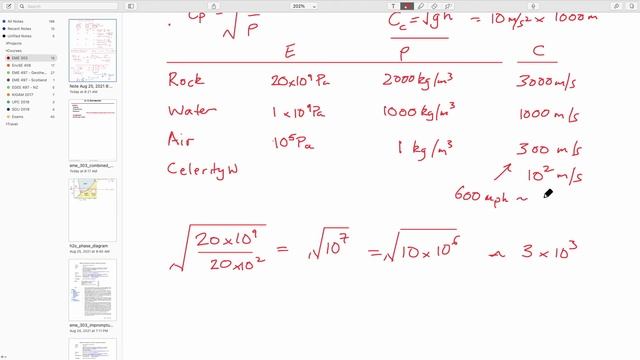 202%
All Notes 18
Recent Notes 1
Unfiled Notes 0
Projects
Courses
EME 303 16
EnvSE 408 1
EME 497 - Geothe... 1
EME 497 - Scotland 1
EGEE 497 - NZ
KIGAM 2017
UPC 2018
SDU 2018
Exams
Travel
Note Aug 25, 2021 8:...
Today at 8:21 AM
eme_303_combined_...
Today at 8:17 AM
h2o_phase_diagram
Aug 24, 2021 at 8:20 AM
eme_303_impromptu...
Aug 24, 2021 at 7:11 PM
Cp = √ / ρ
Cc = √gh = 10 m/s² × 1000 m
E ρ C
Rock 20×10⁹ Pa 2000 kg/m³ 3000 m/s
Water 1×10⁹ Pa 1000 kg/m³ 1000 m/s
Air 10⁵ Pa 1 kg/m³ 300 m/s
Celerity W 10² m/s
600 mph ~
√20×10⁹ / 20×10² = √10⁷ = √10×10⁶ ~ 3×10³